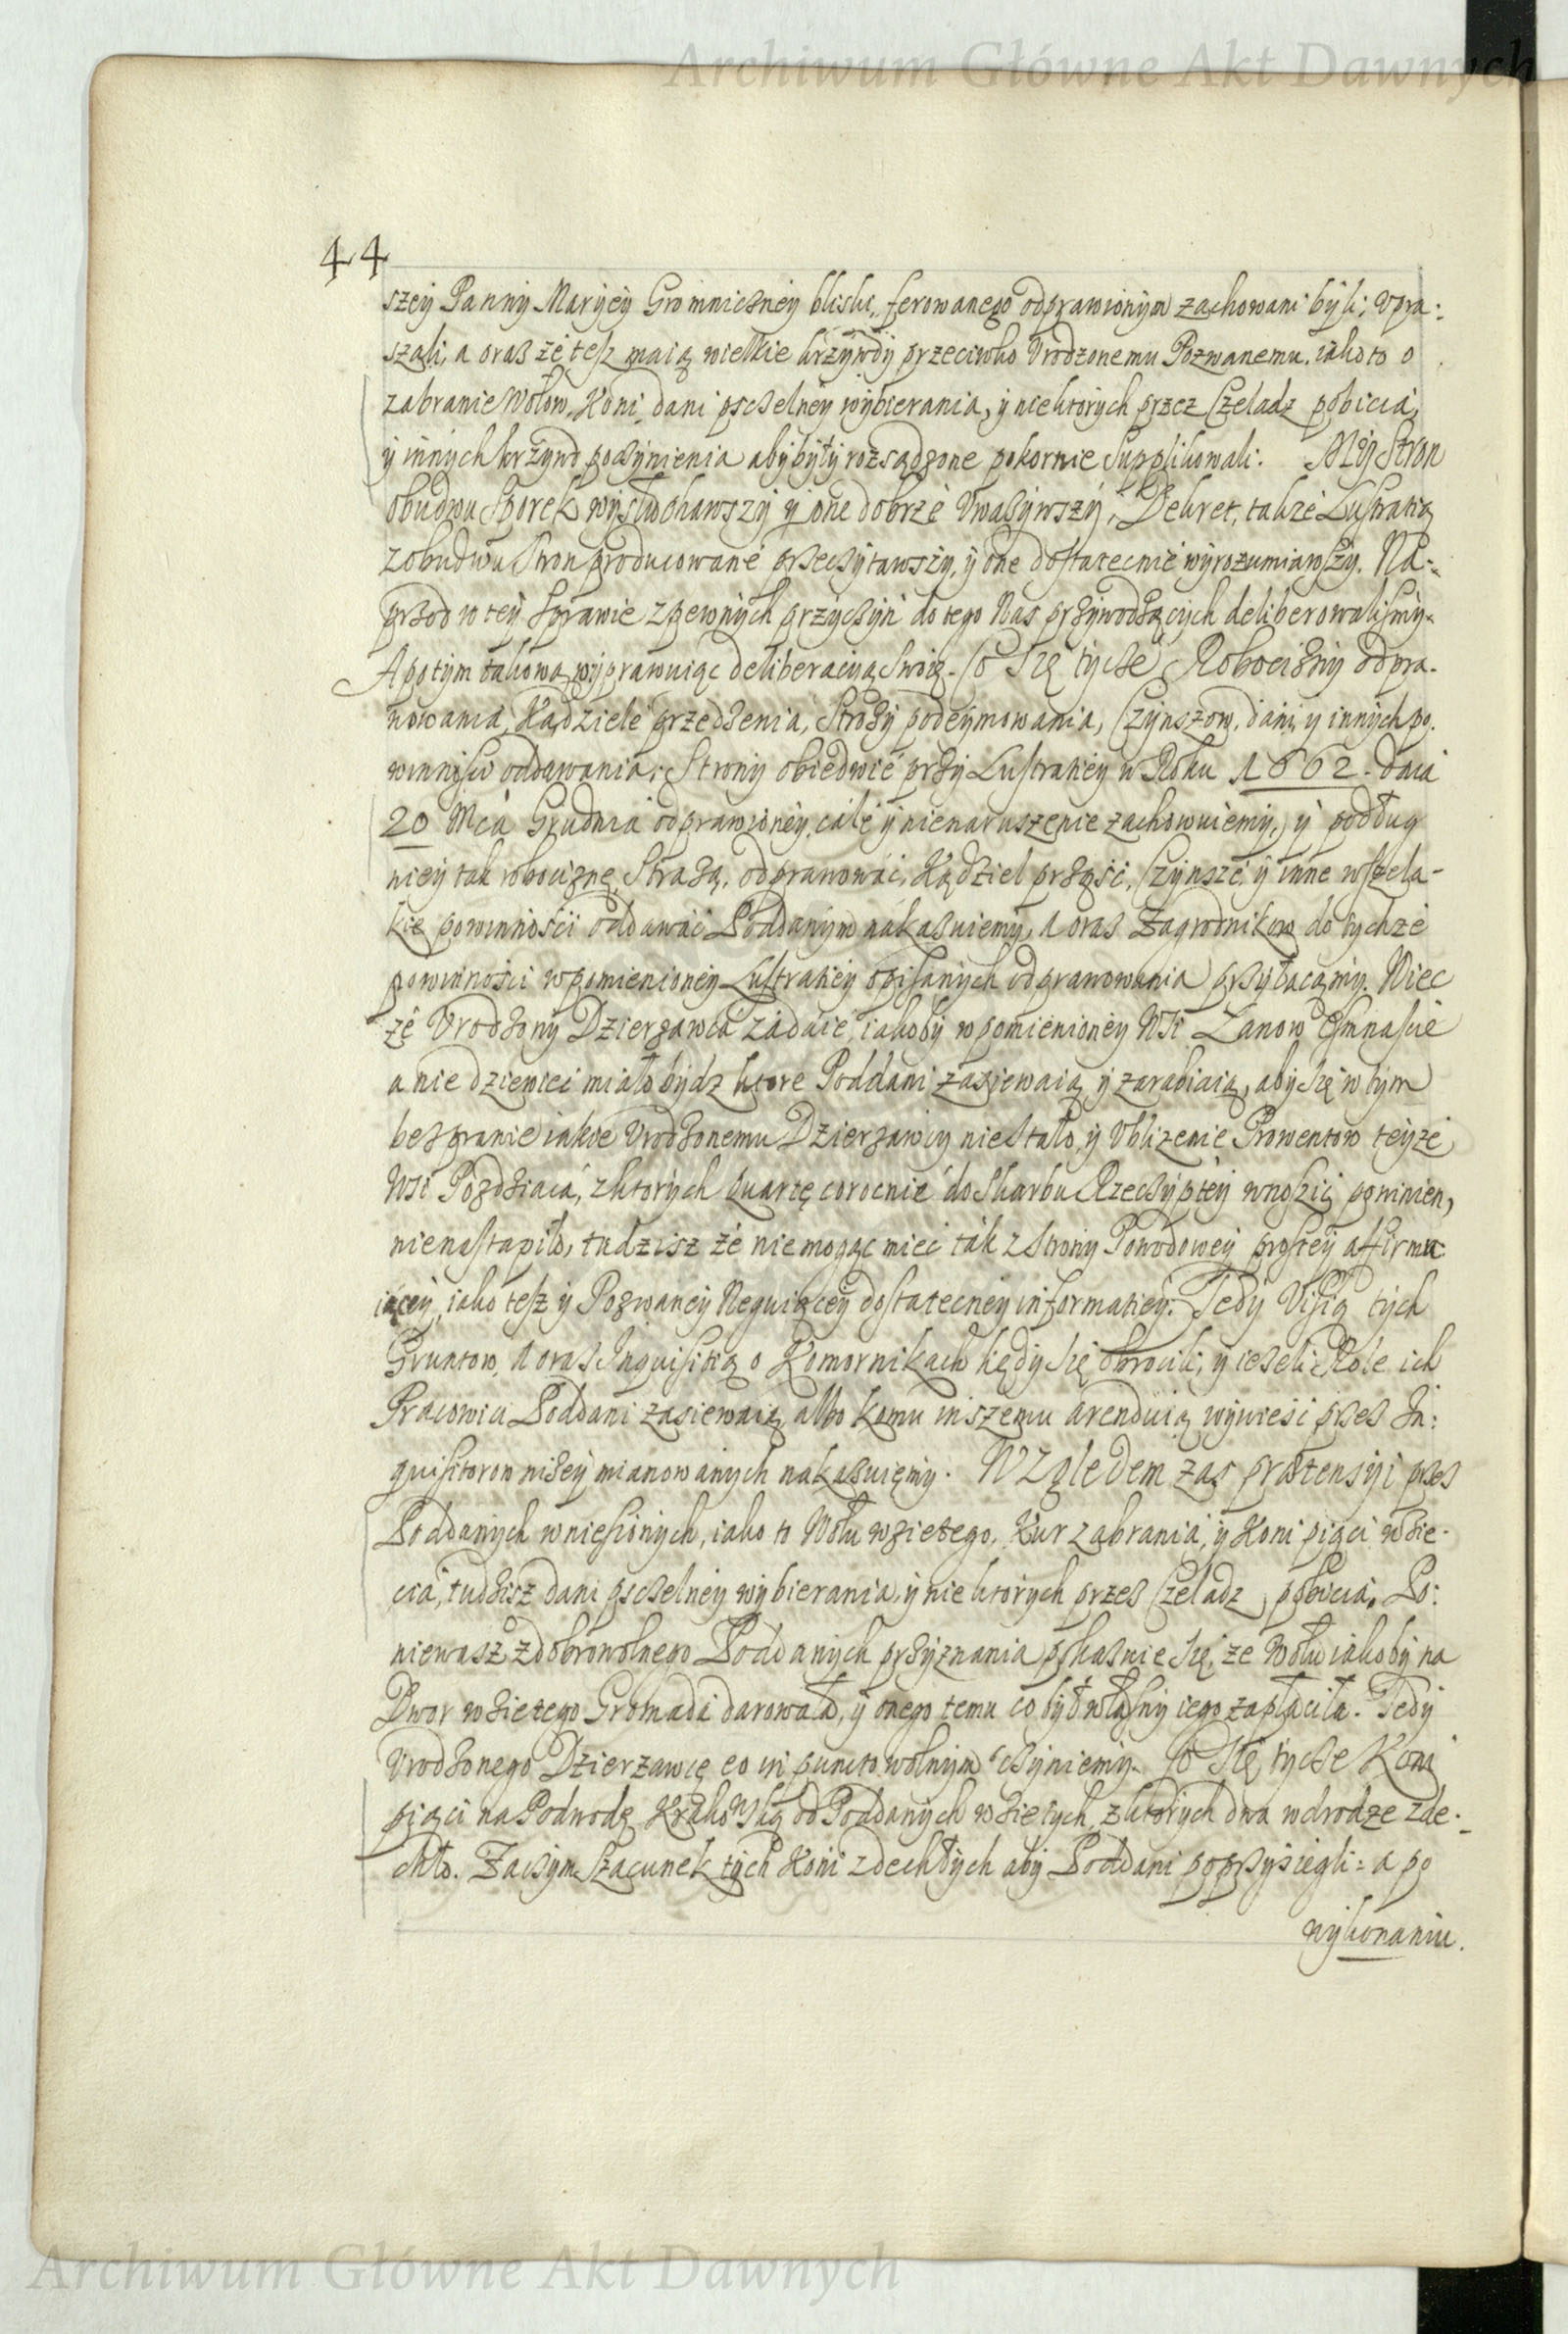 Archiwum Główne Akt Dawnych
44
szey Panny Maryey Gromniczney blisko ferowanego odprawionym zachowani byli; vpra:
szali, a oraz że tesz maią wielkie krzywdy przeciwko Vrodzonemu Pozwanemu, iako to o
zabranie Wołow, Koni, dani psczelney wybierania, y niektorych przez Czeladz pobicia,
y innych krzywd poczynienia aby były rozsądzone pokornie Supplikowali. My Stron
obudwu Sporek wysłuchawszy y one dobrze Vważywszy, Dekret, także Lustratią
z obudwu Stron producowane przeczytawszy, y one dostatecznie wyrozumiawszy. Na:
przod w tey Sprawie z pewnych przyczyn do tego Nas przywodzących deliberowalismy.
A potym takową wyprawuiąc deliberacyą Swoią. Co Się tycze Robocizny odpra-
wowania, Kądziele przedzenia, Stroży podeymowania, Czynszow, dani y innych po.
winnosci oddawania: Strony obiedwie przy Lustratiey w Roku 1662. dnia
20 Mca Grudnia odprawioney, całe y nienaruszenie zachowuiemy, y podług
niey tak robociznę, Strażą, odprawować, Kądziel prząść, Czynsze, y inne wszela-
kie powinności oddawać Poddanym nakazuiemy, a oraz Zagrodnikow do tychże
powinności w pomienioney Lustratiey opisanych odprawowania przyłaczamy. Wiec
że Vrodzony Dzierzawca zadaie, iakoby w pomienioney Wsi Łanow Osmnaście
a nie dziewieć miało bydz ktore Poddani zasiewaią y zarabiaią, aby Się w tym
bezprawie iakie Vrodzonemu Dzierzawcy nie Stało, y Vbliżenie Prowentow teyże
Wsi Pozdziacá, z ktorych Quartę corocznie do Skarbu Rzeczyptey wnosić powinien,
nienastąpiło, tudzisz że niemogąc mieć ták z Strony Powodowey prostey affirmu-
iącey, iako tesz y Pozwaney Neguiącey dostateczney informatiey. Tedy Visią tych
Gruntow, a oraz Inquisitią o Komornikach kędy Się obrocili, y ieżeli Role ich
Pracowici Poddani zasiewaią, albo komu inszemu arenduią wywieść przes In:
quisitorow niżey mianowanych nakazuięmy. Względem zas prætensyi przes
Poddanych wniesionych, iako to Wołu wzietego, Kur zabrania, y Koni piąci wzie-
cia, tudzisz dani pscelney wybierania, y niektorych przes Czeladz pobicia. Po:
niewasz z dobrowolnego Poddanych przyznania pokaznie Się, że Wołu iakoby na
Dwor wzietego Gromada darowała, y onego temu co był własny iego zapłaciła. Tedy
Vrodzonego Dzierzawcę eo in puncto wolnym czyniemy. Co Się tycze Koni
piąci na Podwodę Krakowską od Poddanych wzietych, z ktorych dwa w drodze zde-
chło. Zaczym Szacunek tych Koni zdechłych aby Poddani poprzysiegli: a po
wykonaniu.
Archiwum Główne Akt Dawnych